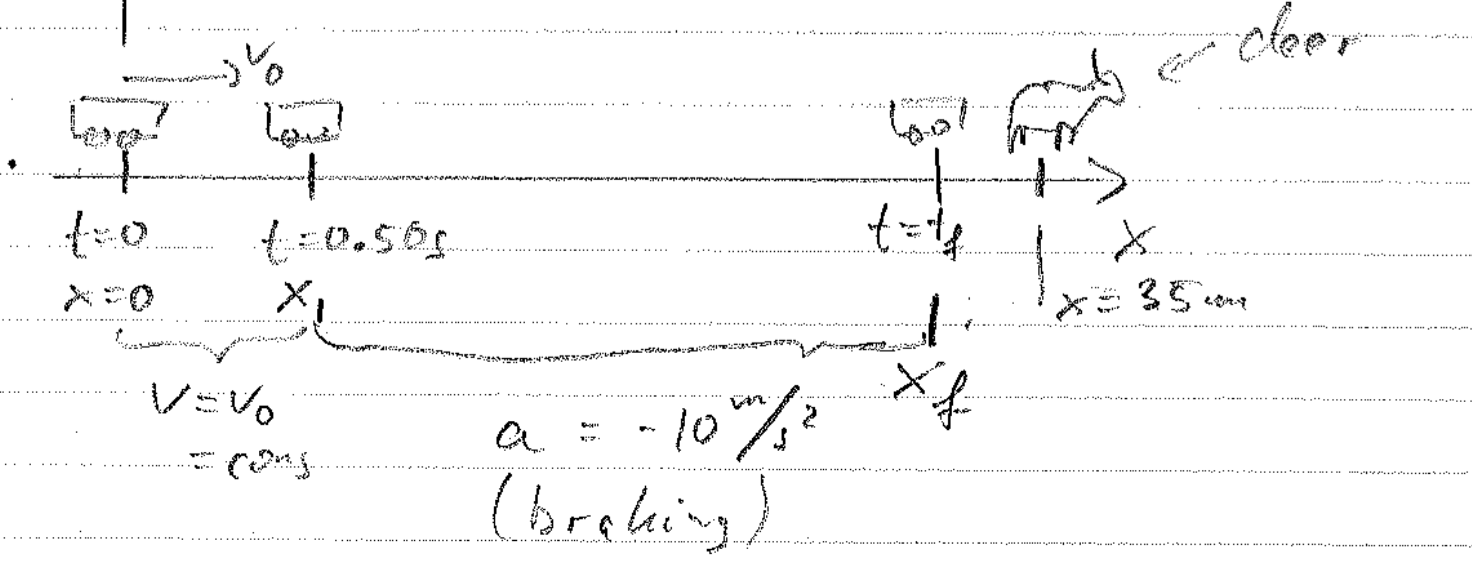 v₀
deer
t=0 t=0.50s t=t_f x
x=0 x₁ x=35m
x_f
V=v₀
=cons
a = -10 m/s²
(braking)